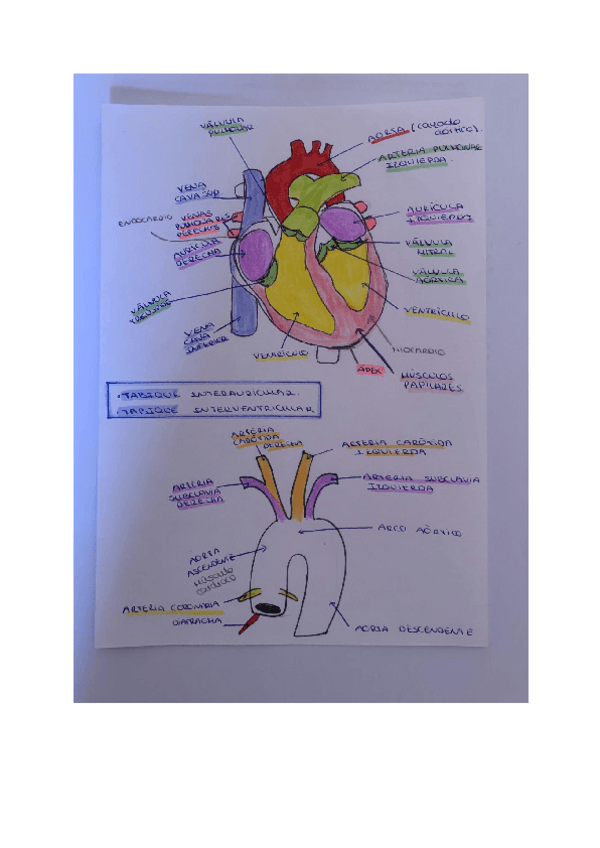 VÁLVULA
PULMONAR
AORTA (cayado
aórtico).
ARTERIA PULMONAR
IZQUIERDA.
VENA
CAVA SUP
ENDOCARDIO
VENAS
PULMONARES
DERECHAS
AURÍCULA
IZQUIERDA
AURÍCULA
DERECHA
VÁLVULA
MITRAL
VÁLVULA
AÓRTICA
VÁLVULA
TRICÚSPIDE
VENTRÍCULO
VENA
CAVA
INFERIOR
VENTRÍCULO
MIOCARDIO
APEX
MÚSCULOS
PAPILARES
.TABIQUE INTERAURICULAR.
.TABIQUE INTERVENTRICULAR.
ARTERIA
CARÓTIDA
DERECHA
ARTERIA CARÓTIDA
IZQUIERDA
ARTERIA
SUBCLAVIA
DERECHA
ARTERIA SUBCLAVIA
IZQUIERDA
ARCO AÓRTICO
AORTA
ASCENDENTE
MÚSCULO
CARDIACO
ARTERIA CORONARIA
AORTA DESCENDENTE